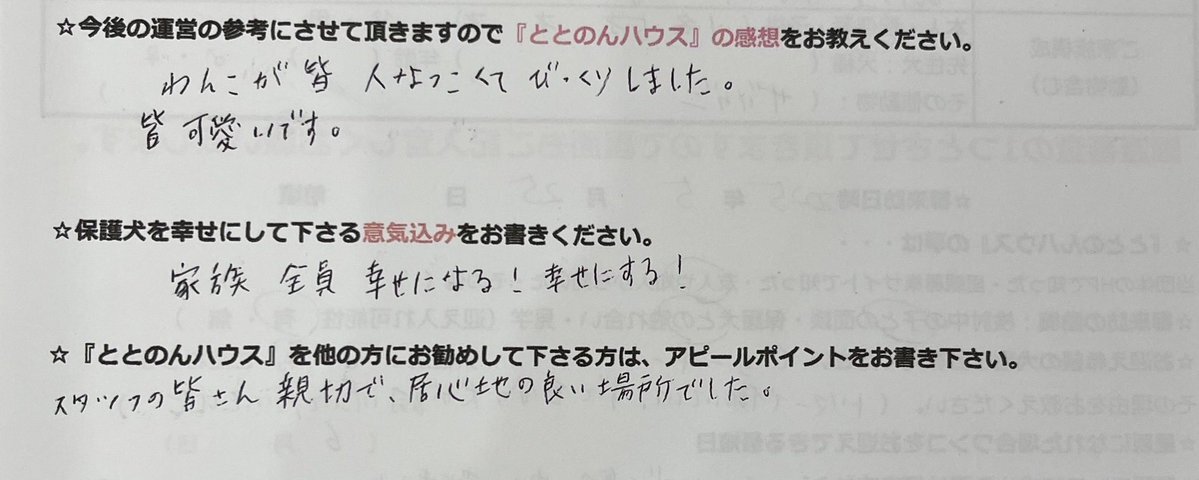 ☆今後の運営の参考にさせて頂きますので『ととのんハウス』の感想をお教えください。
わんこが皆 人なつっこくて びっくりしました。
皆 可愛いです。
☆保護犬を幸せにして下さる意気込みをお書きください。
家族 全員 幸せになる！幸せにする！
☆『ととのんハウス』を他の方にお勧めして下さる方は、アピールポイントをお書き下さい。
スタッフの皆さん 親切で、居心地の良い場所でした。